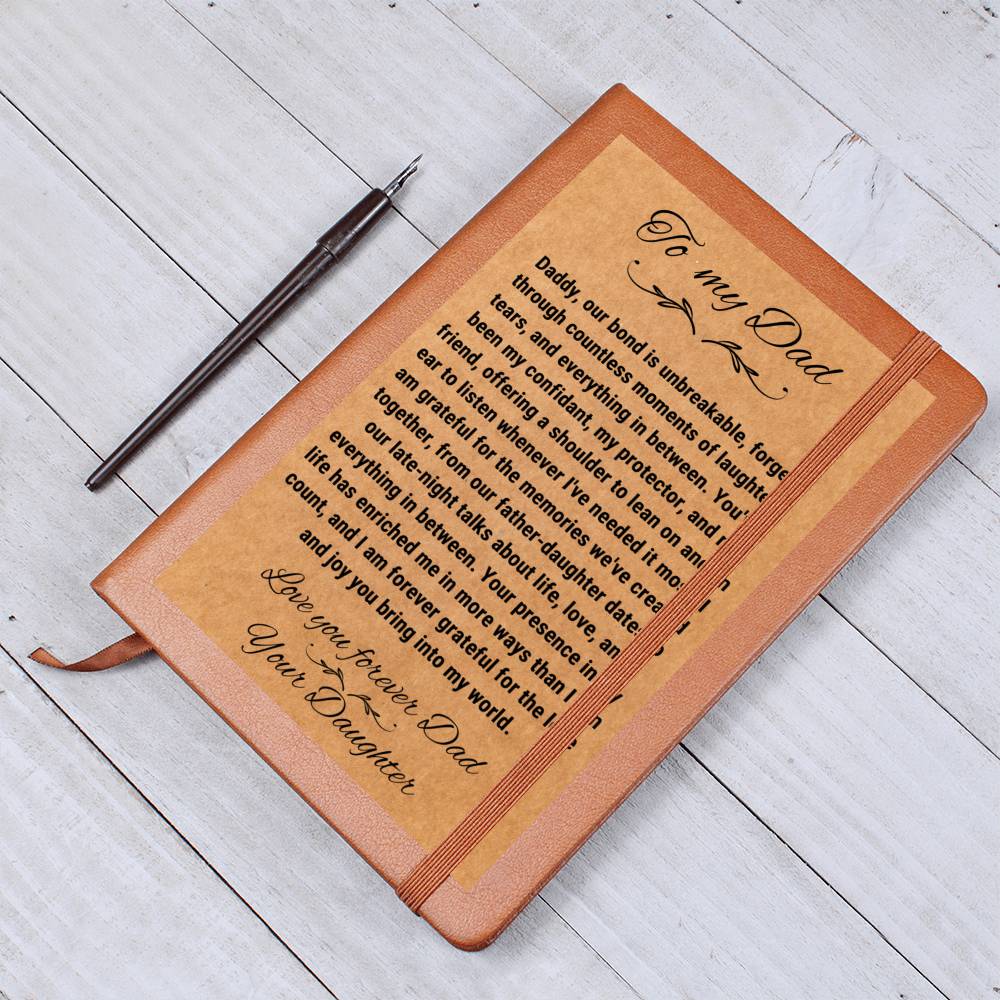 To my Dad
Daddy, our bond is unbreakable, forge
through countless moments of laughte
tears, and everything in between. You'
been my confidant, my protector, and
friend, offering a shoulder to lean on and an
ear to listen whenever I've needed it mos I
am grateful for the memories we've crea d
together, from our father-daughter date o
our late-night talks about life, love, an
everything in between. Your presence in y
life has enriched me in more ways than I n
count, and I am forever grateful for the l e
and joy you bring into my world.
Love you forever Dad
Your Daughter